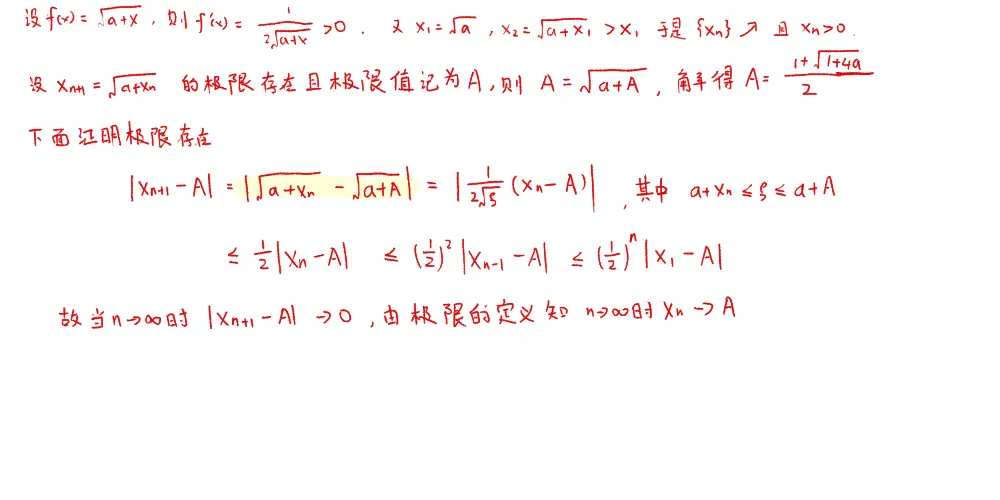 设 f(x) = √(a+x) , 则 f'(x) = 1/(2√(a+x)) > 0 . 又 x₁ = √a , x₂ = √(a+x₁) > x₁ 于是 {xₙ} ↗ 且 xₙ > 0 .
设 xₙ₊₁ = √(a+xₙ) 的极限存在且极限值记为 A , 则 A = √(a+A) , 解得 A = (1+√(1+4a))/2
下面证明极限存在
|xₙ₊₁ - A| = |√(a+xₙ) - √(a+A)| = |1/(2√ξ) (xₙ - A)| , 其中 a+xₙ ≤ ξ ≤ a+A
≤ 1/2 |xₙ - A| ≤ (1/2)² |xₙ₋₁ - A| ≤ (1/2)ⁿ |x₁ - A|
故当 n→∞ 时 |xₙ₊₁ - A| → 0 , 由极限的定义知 n→∞ 时 xₙ → A